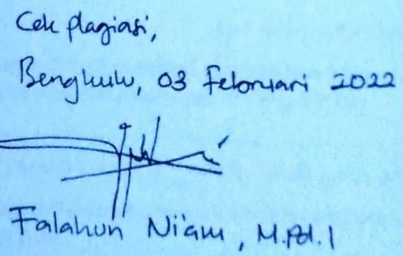 Cek plagiasi,
Bengkulu, 03 Februari 2022
Falahun Ni'am, M.Pd.I